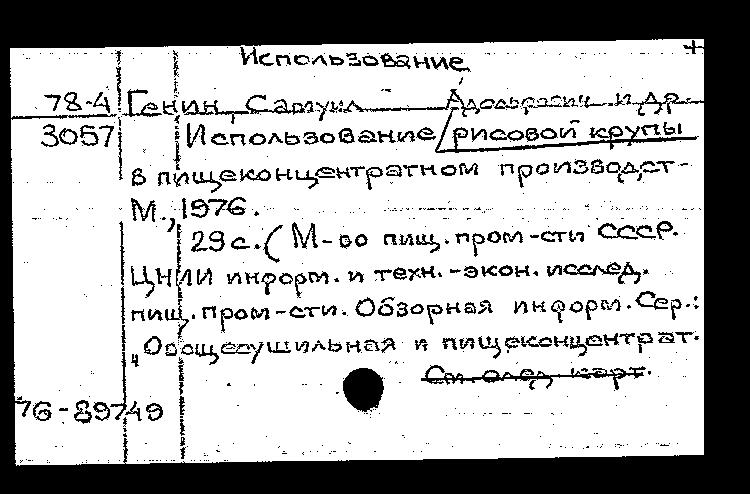 Использование
78-4 Генин, Самуил Адольфович и др.
3057 Использование/рисовой крупы
в пищеконцентратном производст-
М., 1976.
29 с. (М-во пищ. пром-сти СССР.
ЦНИИ информ. и техн.-экон. исслед.
пищ. пром-сти. Обзорная информ. Сер.:
"Овощесушильная и пищеконцентрат.
См. след. карт.
76-89749